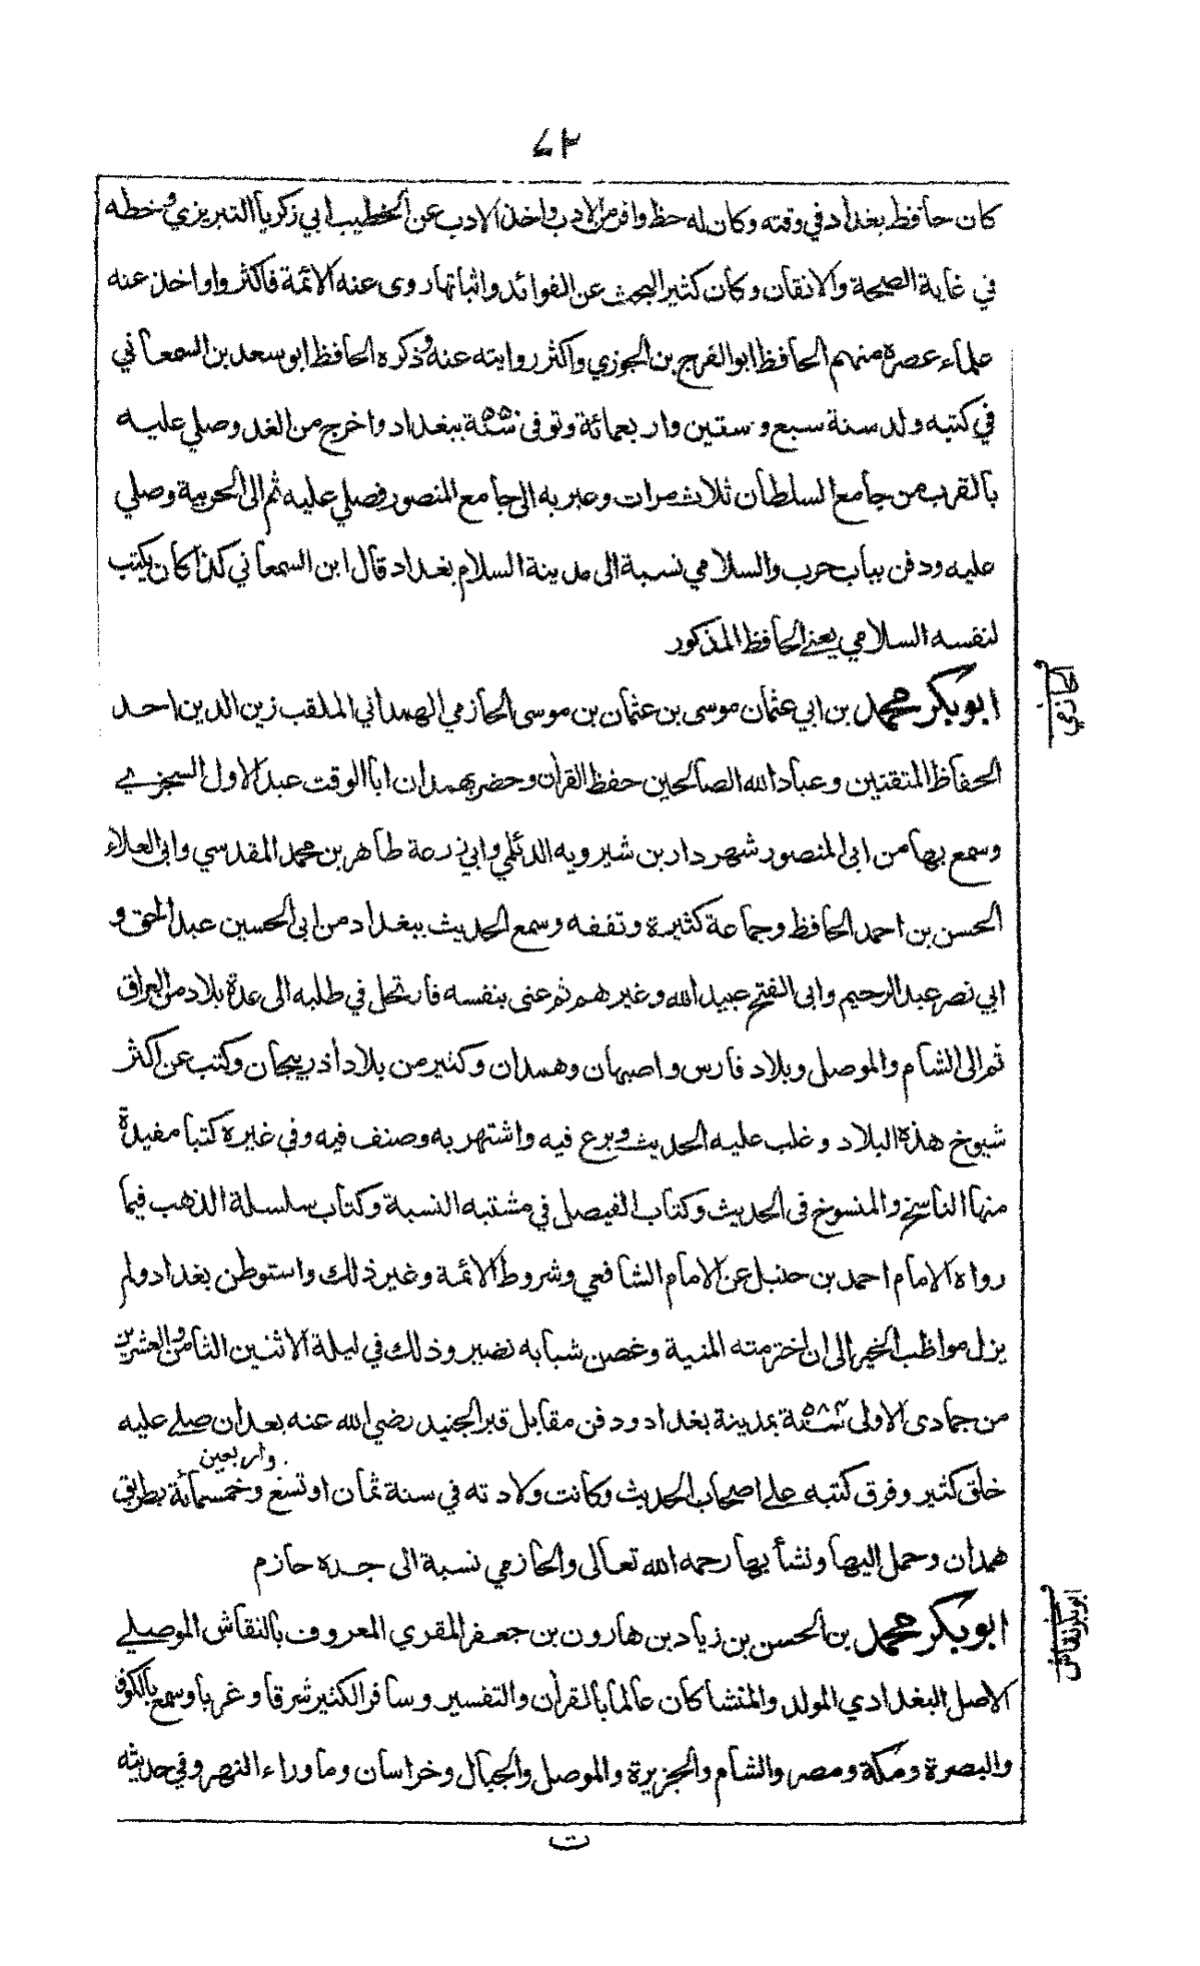 ٤٢
كان حافظ بغداد في وقته وكان له حظ وافر من الادب واخذ الادب عن الخطيب ابي زكريا التبريزي وخطه
في غاية الصحة والاتقان وكان كثير البحث عن الفوائد واثباتها روى عنه الائمة فاكثروا واخذ عنه
علماء عصره منهم الحافظ ابو الفرج بن الجوزي واكثر روايته عنه وذكره الحافظ ابو سعد بن السمعاني
في كتبه ولد سنة سبع وستين واربعمائة وتوفى سنة ٥٥٠ ببغداد واخرج من الغد وصلي عليه
بالقرب من جامع السلطان ثلاث مرات وعبر به الى جامع المنصور فصلي عليه ثم الى الحربية وصلي
عليه ودفن بباب حرب والسلامي نسبة الى مدينة السلام بغداد قال ابن السمعاني كذا كان يكتب
لنفسه السلامي يعني الحافظ المذكور
الحازمي
ابو بكر محمد بن ابي عثمان موسى بن عثمان بن موسى الحازمي الهمداني الملقب زين الدين احد
الحفاظ المتقنين وعباد الله الصالحين حفظ القرآن وحضر بهمدان ابا الوقت عبد الاول السجزي
وسمع بها من ابى المنصور شهردار بن شيرويه الديلمي وابي زرعة طاهر بن محمد المقدسي وابى العلاء
الحسن بن احمد الحافظ وجماعة كثيرة وتفقه وسمع الحديث ببغداد من ابى الحسين عبد الحق و
ابي نصر عبد الرحيم وابى الفتح عبيد الله وغيرهم ثم عنى بنفسه فارتحل في طلبه الى عدة بلاد من العراق
ثم الى الشام والموصل وبلاد فارس واصبهان وهمدان وكثير من بلاد أذربيجان وكتب عن اكثر
شيوخ هذه البلاد وغلب عليه الحديث وبرع فيه واشتهر به وصنف فيه وفي غيره كتبا مفيدة
منها الناسخ والمنسوخ فى الحديث وكتاب الفيصل في مشتبه النسبة وكتاب سلسلة الذهب فيما
رواه الامام احمد بن حنبل عن الامام الشافعي وشروط الائمة وغير ذلك واستوطن بغداد ولم
يزل مواظب الخير الى ان اخترمته المنية وغصن شبابه نضير وذلك في ليلة الاثنين الثامن والعشرين
من جمادى الاولى سنة ٥٨٤ بمدينة بغداد ودفن مقابل قبر الجنيد رضي الله عنه بعد ان صلي عليه
واربعين
خلق كثير وفرق كتبه على اصحاب الحديث وكانت ولادته في سنة ثمان او تسع وخمسمائة بطريق
همدان وحمل اليها ونشأ بها رحمه الله تعالى والحازمي نسبة الى جده حازم
ابو بكر نقاش
ابو بكر محمد بن الحسن بن زياد بن هارون بن جعفر المقري المعروف بالنقاش الموصلي
الاصل البغدادي المولد والمنشا كان عالما بالقرآن والتفسير وسافر الكثير شرقا وغربا وسمع بالكوفة
والبصرة ومكة ومصر والشام والجزيرة والموصل والجبال وخراسان وما وراء النهر وفي حديثه
ت